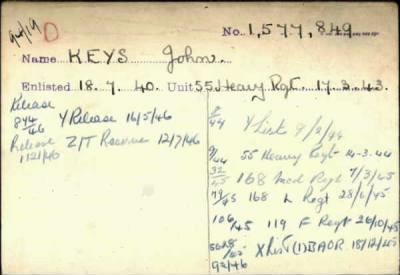 94/19 D
No. 1,577,849
Name KEYS John.
Enlisted 18.7.40. Unit 55 Heavy Rgt. 17.3.43.
Release
844/46 Y Release 16/5/46
Release Z/T Reserve 12/7/46
1121/46
8/44 Y List 9/8/44
9/44 55 Heavy Regt 14-3-44
32/45 168 Med Regt 7/3/45
79/45 168 L Regt 28/6/45
106/45 119 F Regt 26/10/45
X List (1) BAOR 18/12/45
92/46